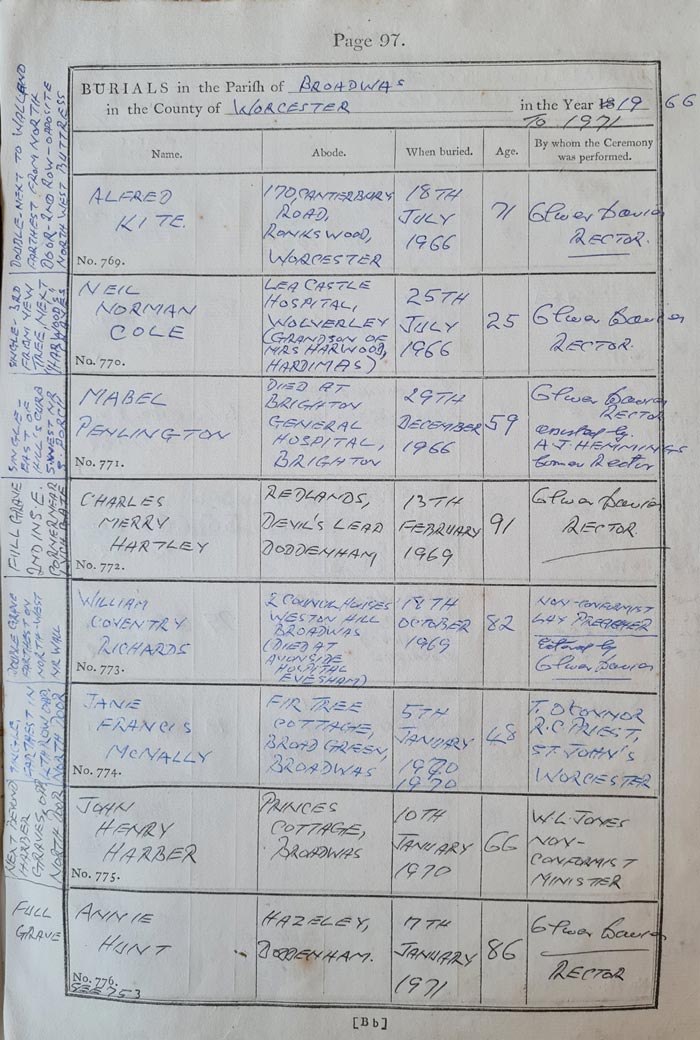 Page 97.
BURIALS in the Parish of BROADWAS
in the County of WORCESTER in the Year 1819 66
TO 1971
Name. Abode. When buried. Age. By whom the Ceremony was performed.
ALFRED
KITE.
No. 769.
170 CANTERBURY
ROAD,
RONKSWOOD,
WORCESTER
18TH
JULY
1966
71
RECTOR.
DOUBLE-NEXT TO WALL AND
FARTHEST FROM NORTH
DOOR-2ND ROW-OPPOSITE
NORTH WEST BUTTRESS
NEIL
NORMAN
COLE
No. 770.
LEA CASTLE
HOSPITAL,
WOLVERLEY
(GRANDSON OF
MRS HARWOOD,
HARDIMAS)
25TH
JULY
1966
25
RECTOR.
SINGLE-3RD
FROM YEW
TREE, NEXT
HARWOODS'
MABEL
PENLINGTON
No. 771.
DIED AT
BRIGHTON
GENERAL
HOSPITAL,
BRIGHTON
29TH
DECEMBER
1966
59
RECTOR
assisted by
A J HEMMINGS
former Rector
SINGLE-
EAST OF
HILL'S CURB
S. PORCH
CHARLES
MERRY
HARTLEY
No. 772.
REDLANDS,
DEVIL'S LEAD
DODDENHAM
13TH
FEBRUARY
1969
91
RECTOR.
FULL GRAVE
2ND IN S.E.
CORNER NEAR
LYCH GATE
WILLIAM
COVENTRY
RICHARDS
No. 773.
2 COUNCIL HOUSES
WESTON HILL
BROADWAS
(DIED AT
AVONSIDE
HOSPITAL
EVESHAM)
18TH
OCTOBER
1969
82
NON-CONFORMIST
LAY PREACHER
Entered by
DOUBLE GRAVE
FARTHEST ON
NORTH WEST
NR WALL
JANE
FRANCIS
McNALLY
No. 774.
FIR TREE
COTTAGE,
BROAD GREEN,
BROADWAS
5TH
JANUARY
1970
1970
48
T. O'CONNOR
R.C PRIEST,
ST. JOHN'S
WORCESTER
SINGLE,
FARTHEST IN
4TH ROW OPP.
NORTH DOOR
JOHN
HENRY
HARBER
No. 775.
PRINCES
COTTAGE,
BROADWAS
10TH
JANUARY
1970
66
W L JONES
NON-
CONFORMIST
MINISTER
NEXT BEHIND
HARBER
GRAVES, OPP
NORTH DOOR
ANNIE
HUNT
No. 776.
SEE 753
HAZELEY,
DODDENHAM.
17TH
JANUARY
1971
86
RECTOR
FULL
GRAVE
[Bb]